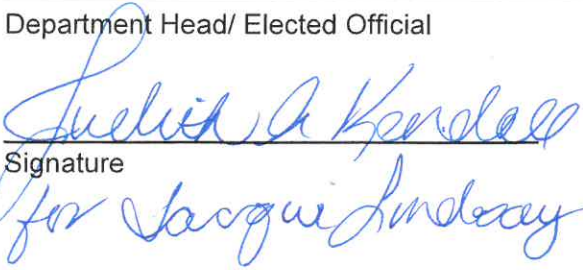 Department Head/ Elected Official
Judith A Kendall
Signature
for Jacqui Lindsay